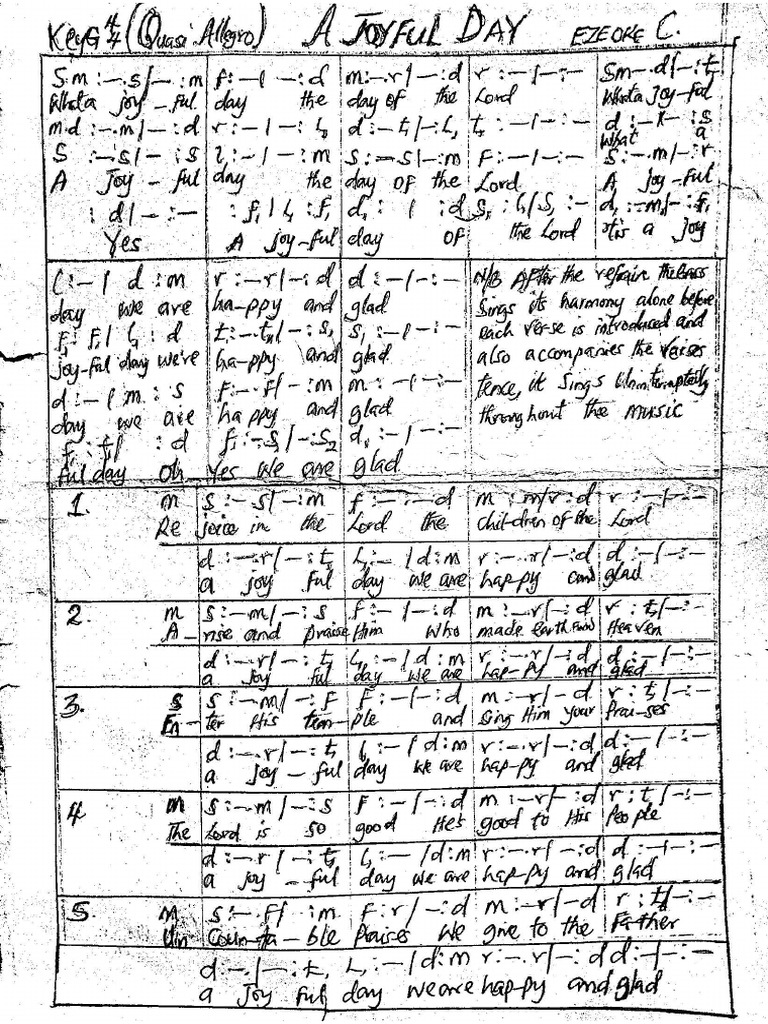 Key G 4/4 (Quasi Allegro) A JOYFUL DAY EZEOKE C.
S.m :-.s/-:m f:-/-:d m:-.r/-:d r:-/-:- Sm-.d/-:t,
What a joy-ful day the day of the Lord What a joy-ful
m.d :-.m/-:d r:-/-:l, d:-t,/-:l, t,:-/-:- d:-/-:s
What a
S :-.s/-:s l:-/-:m s:-s/-:m F:-/-:- s:-.m/-:r
A Joy-ful day the day of the Lord A joy-ful
:d/-:- :f,/l,:f, d,:/:d s,:l,/s,:- d,:-m,/-:f,
Yes A joy-ful day of the Lord 'tis a joy
l:-/d:m r:-.r/-:d d:-/-:- N/B After the refrain the Bass
day we are ha-ppy and glad Sings its harmony alone before
f,:f,/l,:d t,:-.t,/-:s, s,:-/-:- each verse is introduced and
joy-ful day we're ha-ppy and glad also accompanies the verses
d:-/m:s f:-.f/-:m m:-/-:- tence, it sings Uninteruptedly
day we are ha ppy and glad throughout the music
f,:t,/:d f,:-.s,/-:s₂ d,:-/-:-
ful day Oh Yes we are glad
1. m s:-s/-:m f:-:-:d m:m/r:d r:-/-:-
Re joice in the Lord the chil-dren of the Lord
d:-.r/-:t, l,:-/d:m r:-.r/-:d d:-/-:-
a joy ful day we are hap-py and glad
2. m s:-m/-:s f:-/-:d m:-r/-:d r:t,/-:-
A-rise and praise Him who made Earth and Heaven
d:-.r/-:t, l,:-/d:m r:-.r/-:d d:-/-:-
a joy ful day we are hap-py and glad
3. s s:-m/-:F F:-/-:d m:-r/-d r:t,/-:-
En-ter His tem-ple and sing Him your Prai-ses
d:-.r/-:t, l,:-/d:m r:-.r/-:d d:-/-:-
a joy-ful day we are hap-py and glad
4 m s:-m/-:s F:-/-:d m:-r/-:d r:t,/-:-
The Lord is so good He's good to His People
d:-.r/-:t, l,:-/d:m r:-.r/-:d d:-/-:-
a joy-ful day we are hap-py and glad
5 m s:-.F/:m F:r/-:d m:-r/-d r:t,/-:-
Un Coun-ta-ble Praises We give to the Father
d:-./-:t, l,:-/d:m r:-.r/-:d d:-/-:-
a Joy ful day we are hap-py and glad